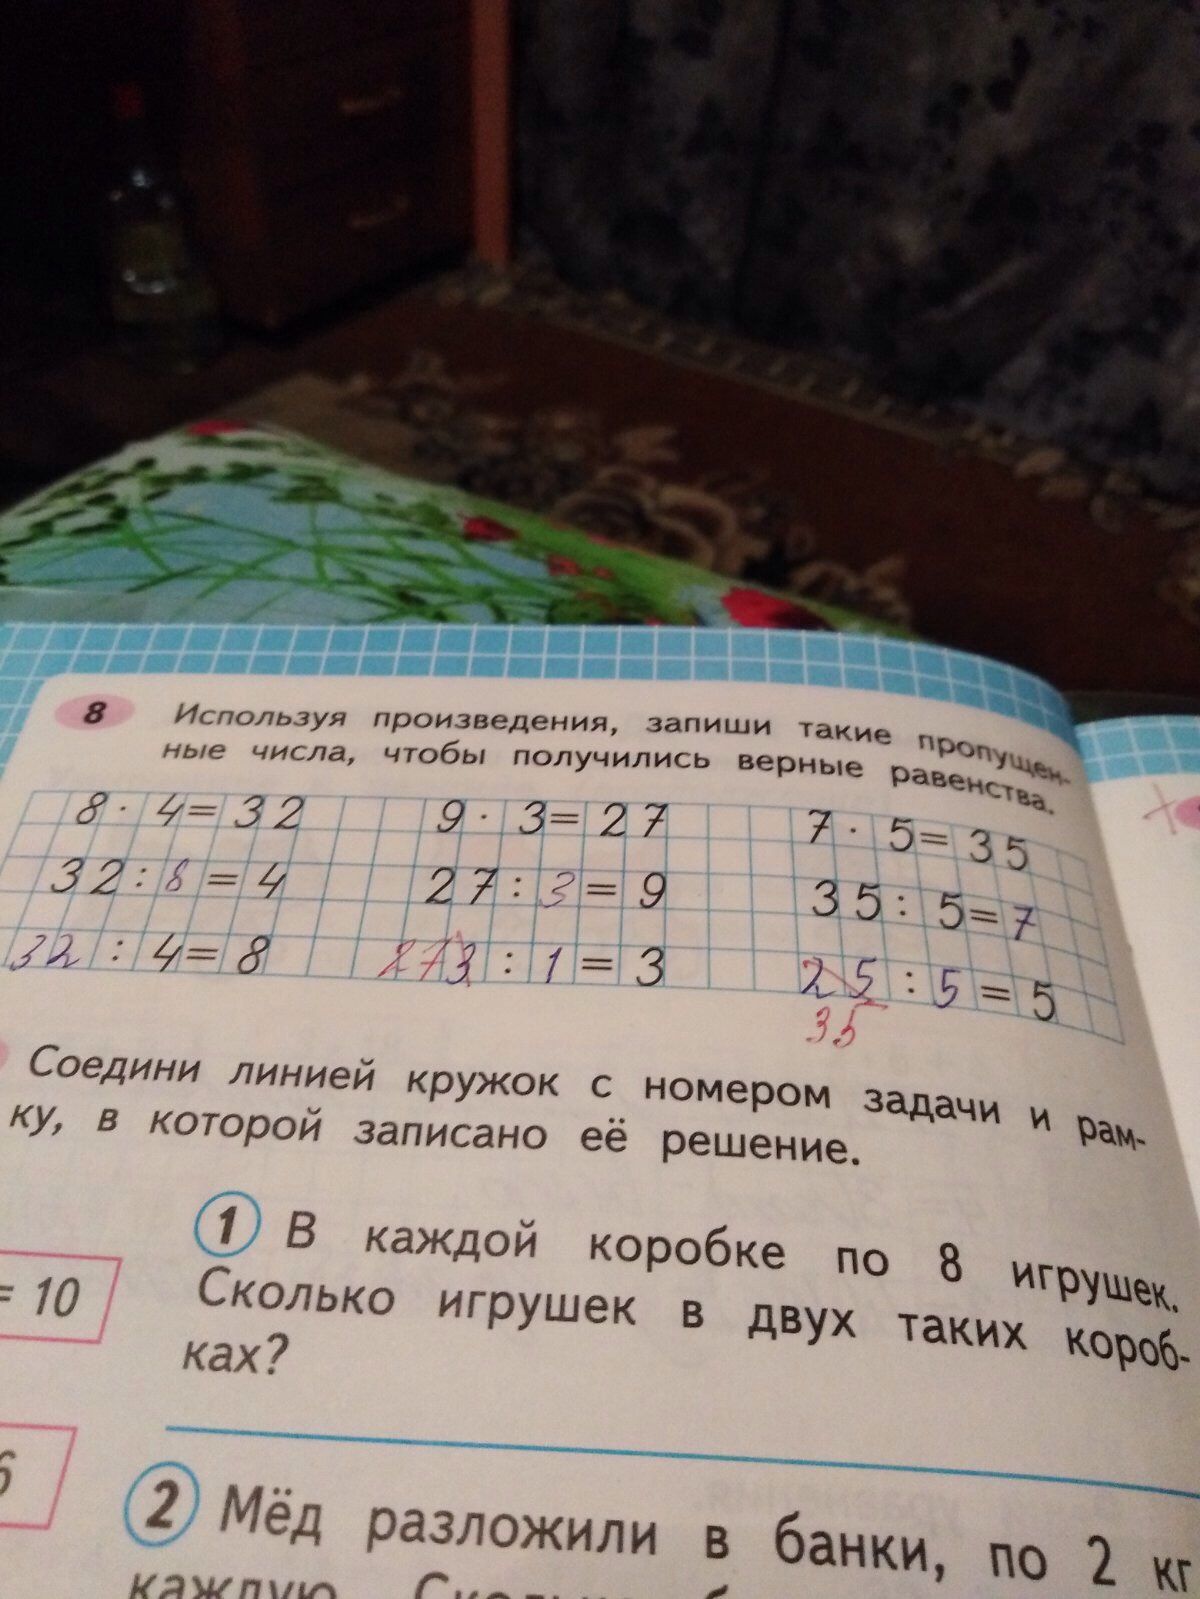 8 Используя произведения, запиши такие пропущен-
ные числа, чтобы получились верные равенства.
8 · 4 = 32 9 · 3 = 27 7 · 5 = 35
32 : 8 = 4 27 : 3 = 9 35 : 5 = 7
32 : 4 = 8 273 : 1 = 3 25 : 5 = 5
35
Соедини линией кружок с номером задачи и рам-
ку, в которой записано её решение.
1 В каждой коробке по 8 игрушек.
= 10 Сколько игрушек в двух таких короб-
ках?
6
2 Мёд разложили в банки, по 2 кг
каждую.